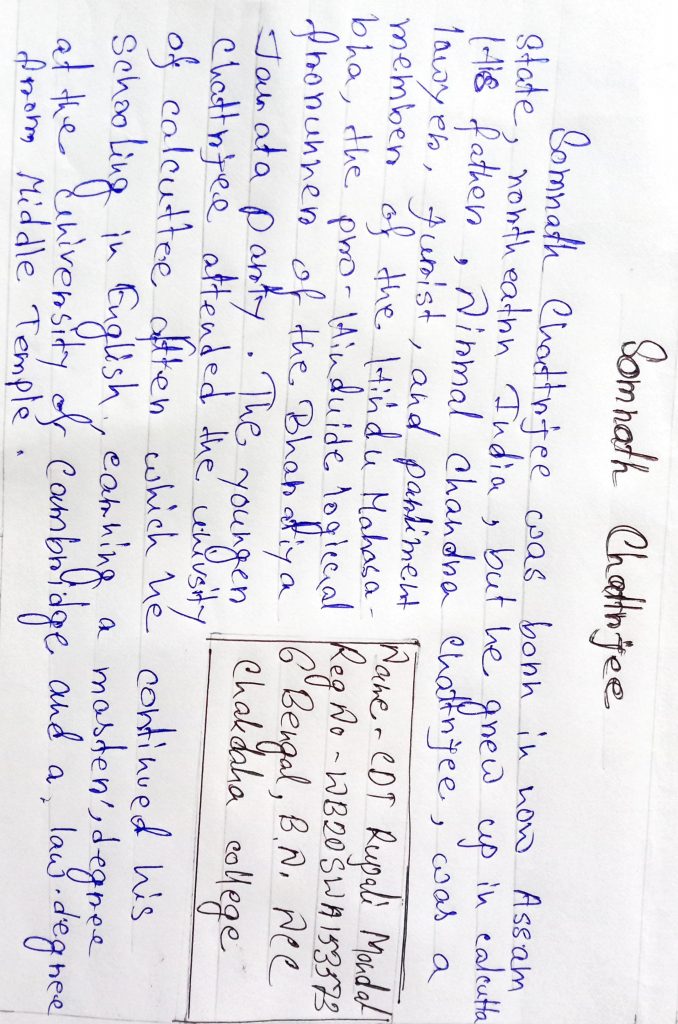 Somnath Chattnjee
Somnath Chattnjee was bonn in now Assam
state, nontheatnn India, but he gnew up in calcutta
His fathen, Ninmal Chandna chattnjee, was a
lawyen, Junist, and panliment
memben of the Hindu Mahasa-
bha, the pno-Hinduide logical
fnonunnen of the Bhanatiya
Janata panty. The youngen
chattnjee attended the univsity
of calcuttee aften which he continued his
schooling in English, eanning a masten's, degnee
at the university of Cambnidge and a, law.degnee
fnom Middle Temple.
Name - CDT Rupali Mondal
Reg No - WB20SWA153373
6 Bengal, B.N. NCC
Chakdaha college